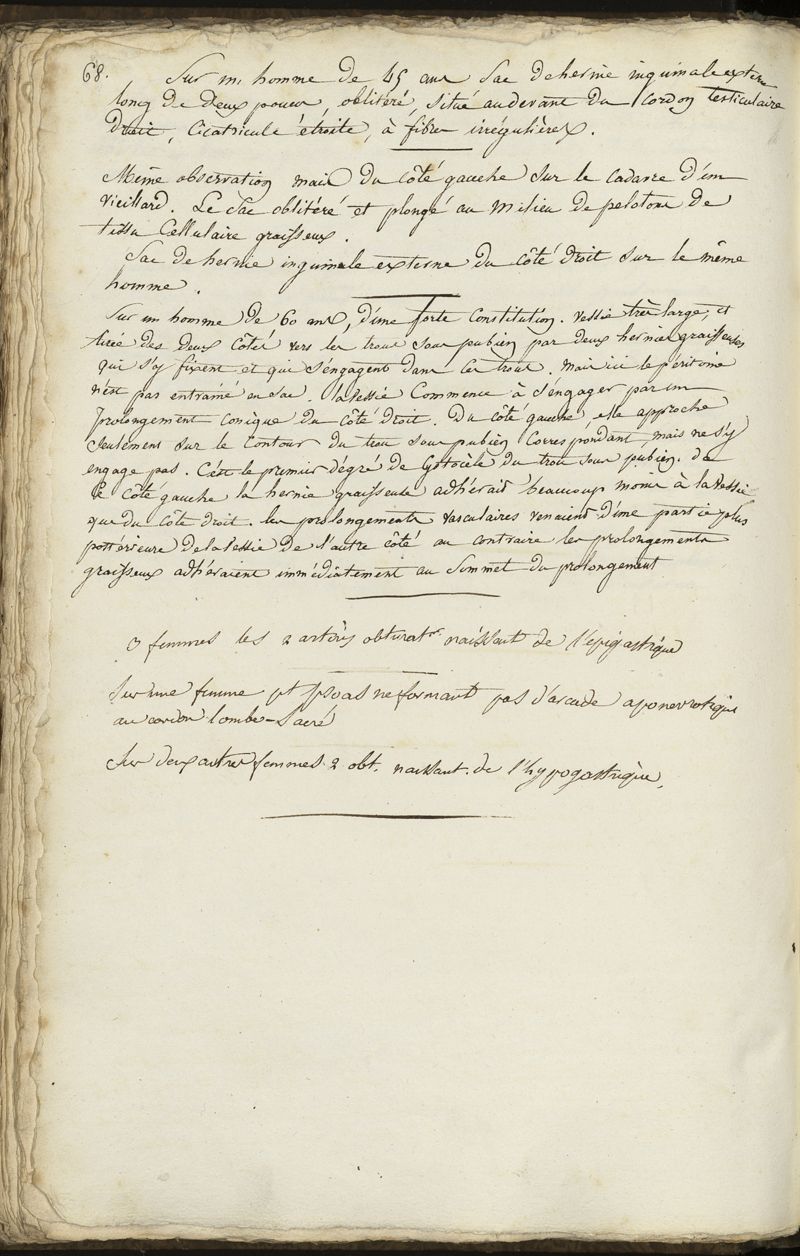 68. Sur un homme de 45 ans Sac de hernie inguinale externe
long de deux pouces, oblitéré, situé au devant du cordon testiculaire
droit, cicatricule étroite, à fibres irrégulières.
Même observation mais du côté gauche sur le cadavre d'un
vieillard. Le sac oblitéré et plongé au milieu de pelotons de
tissu cellulaire graisseux.
Sac de hernie inguinale externe du côté droit sur le même
homme.
Sur un homme de 60 ans, d'une forte constitution. vessie très large, et
tirée des deux côtés vers les trous sous pubien par deux hernies graisseuses
qui s'y fixent et qui s'engagent dans ces trous. mais ici le péritoine
n'est pas entrainé en sac. la vessie commence à s'engager par un
prolongement conique du côté droit. Du côté gauche elle approche
seulement sur le contour du trou sous pubien correspondant, mais ne s'y
engage pas. C'est le premier dégré de Cystocèle du trou sous pubien. de
ce côté gauche la hernie graisseuse adhérait beaucoup moins à la vessie
que du côté droit. les prolongements vasculaires venaient d'une partie plus
postérieure de la vessie de l'autre côté au contraire les prolongements
graisseux adhéraient immédiatement au sommet du prolongement
3 femmes les 2 artères obturat.res naissant de l'épigastrique
Sur une femme pt psoas ne formant pas d'arcade aponevrotique
au cordon lombo-sacré
Sur deux autres femmes 2 obt. naissant de l'hypogastrique.